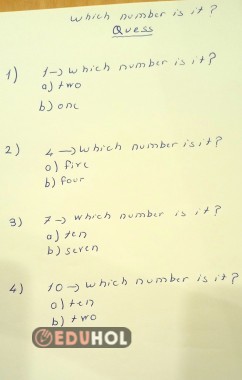 Which number is it?
Quess
1) 1→ which number is it?
a) two
b) one
2) 4 → which number is it?
a) five
b) four
3) 7 → which number is it?
a) ten
b) seven
4) 10 → which number is it?
a) ten
b) two
EDUHOL